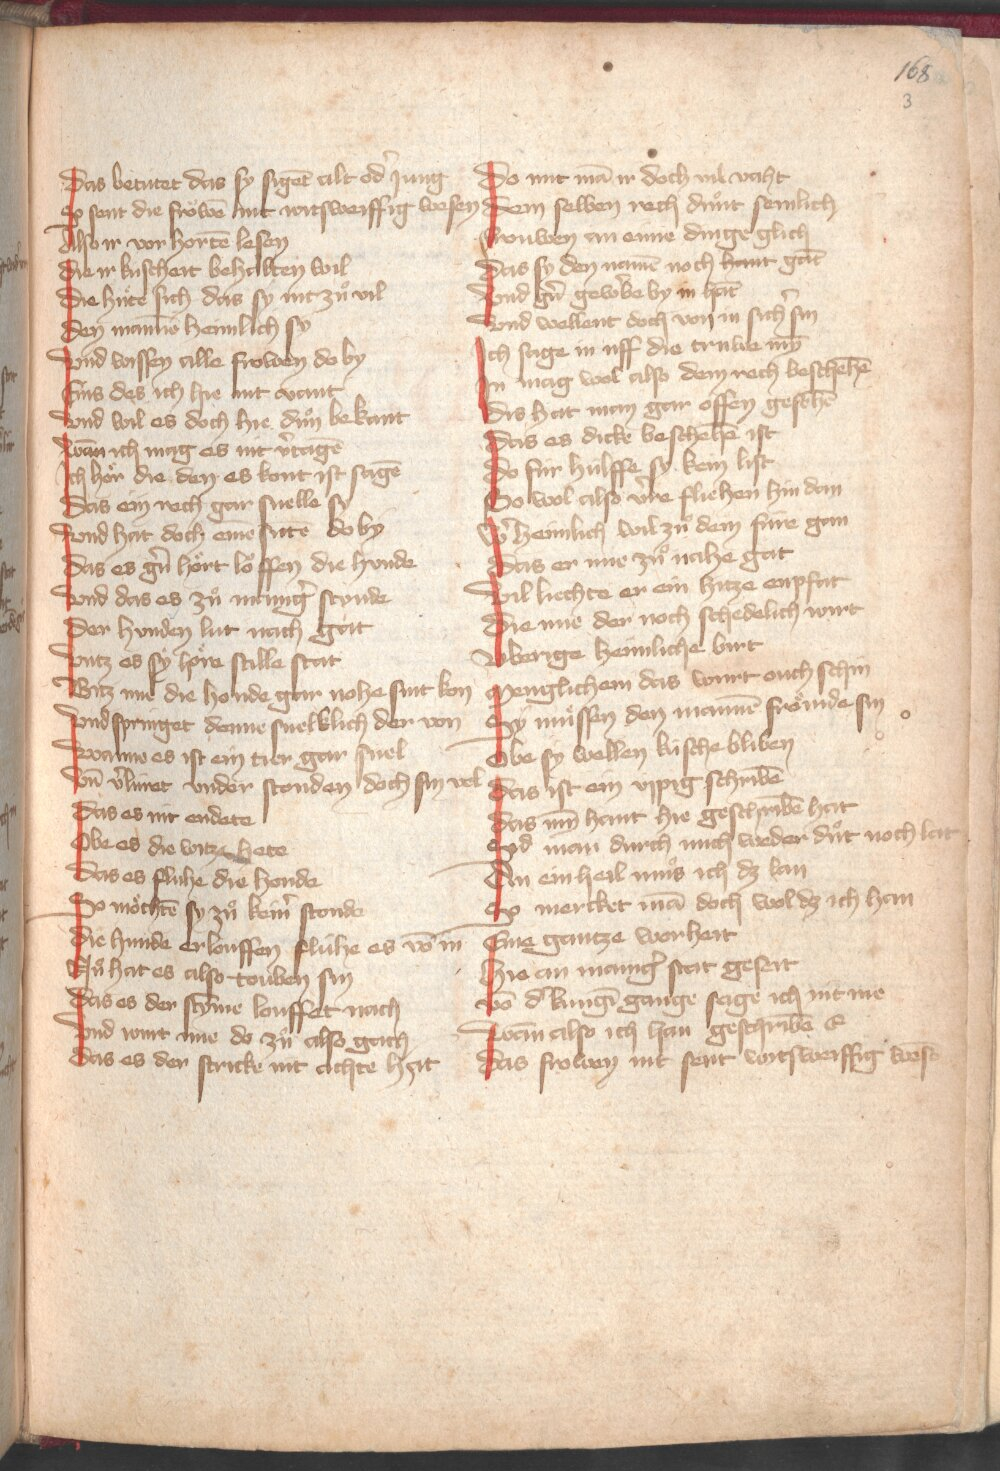 168
3
Das betutet das sy sigēt alt od' Jung
So sent die fröwē nit witsweiffig wesen
Also ir vor hortē lesen
Die ir kuscheit behalten wil
Die hüte sich das sy nit zů vil
Den mannē heimlich sy
Vnd wissen alle frowen do by
Eins des ich hie nit want
Vnd wil es doch hie důn bekant
Wan ich mag es nit v'tagē
Ich hör die den es kont ist sagē
Das ein rech gar snelle sy
Vnd hat doch eine sitte do by
Das es g'n hört löffen die hunde
Vnd das es zů manig' stunde
Der hunden lut nach gat
Vntz es sy höre stille stat
Bitz nie die hunde gar nohe sint kon
Vnd springet denne snelklich der von
Wanne es ist ein tier gar snel
Vn v'liret vnder stonden doch sin vel
Das es nit endete
Obe es die witze hete
Das es fluhe die honde
So möchtē sy zů kein' stonde
Die hunde erlouffen fluhe es vō in
Nů hat es also touben sin
Das es der styme louffet nach
Vnd wirt nie do zů also gach
Das es der stricke nit achte hat
Do mit mā ir doch vil vaht
Dem selben rech důnt semlich
Frouwen an eime dinge glich
Das sy den namē noch hant gat
Vnd g'n gewōbe by in hāt
Vnd wellent doch von in sich' sin
Ich sage in vff die truwe min
In mag wol also dem rech beschehē
Dis hat man gar offen gesehē
Das es dicke beschehē ist
Do fur hulffe sy kein list
So wol also v're fliehen hin dan
W' heimlich wil zů dem füre gan
Das er nie zů nahe gat
Vil liechte er ein hitze enpfat
Die nie der noch schedelich wirt
Vberige heimliche birt
Menglichem das wurt ouch schin
Sy müssen den mannē frönde sin
Obe sy wellen küsche bliben
Das ist ein vppig schribē
Das min hant hie geschribē hat
Vnd man durch mich weder důt noch lat
An ein heil můs ich dz lan
So mercket mā doch wol dz ich han
Eine gantze worheit
Hie an manig' stat geseit
Vō d' kungī gange sage ich nit me
Wan also ich han geschribē E
Das frowen nit sent witsweiffig wesē